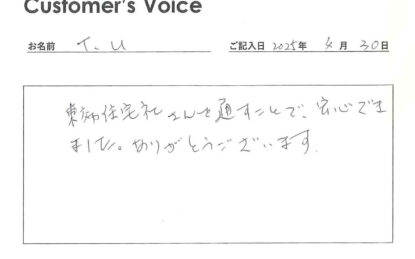 Customer's Voice
お名前 T. U ご記入日 2025年 4月 30日
東宝住宅社さんを通すことで、安心でき
ました。ありがとうございます。